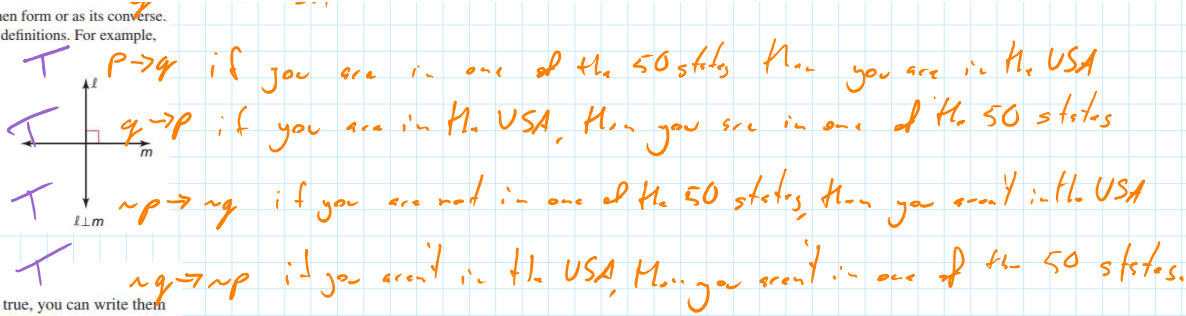 hen form or as its converse.
definitions. For example,
T p→q if you are in one of the 50 states then you are in the USA
ℓ
T q→p if you are in the USA, then you are in one of the 50 states
m
T ~p→~q if you are not in one of the 50 states, then you aren't in the USA
ℓ⊥m
T ~q→~p if you aren't in the USA, then you aren't in one of the 50 states.
true, you can write them